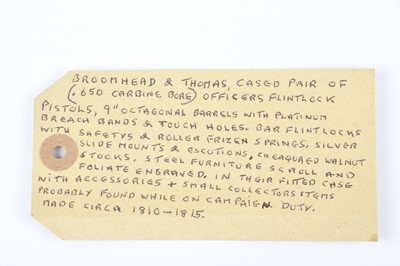 BROOMHEAD & THOMAS, CASED PAIR OF
(.650 CARBINE BORE) OFFICERS FLINTLOCK
PISTOLS, 9" OCTAGONAL BARRELS WITH PLATINUM
BREACH BANDS & TOUCH HOLES. BAR FLINTLOCKS
WITH SAFETYS & ROLLER FRIZEN SPRINGS. SILVER
SLIDE MOUNTS & ESCUTIONS, CHEAQURED WALNUT
STOCKS. STEEL FURNITURE SCROLL AND
FOLIATE ENGRAVED, IN THEIR FITTED CASE
WITH ACCESSORIES + SMALL COLLECTORS ITEMS
PROBABLY FOUND WHILE ON CAMPAIGN DUTY.
MADE CIRCA 1810-1815.